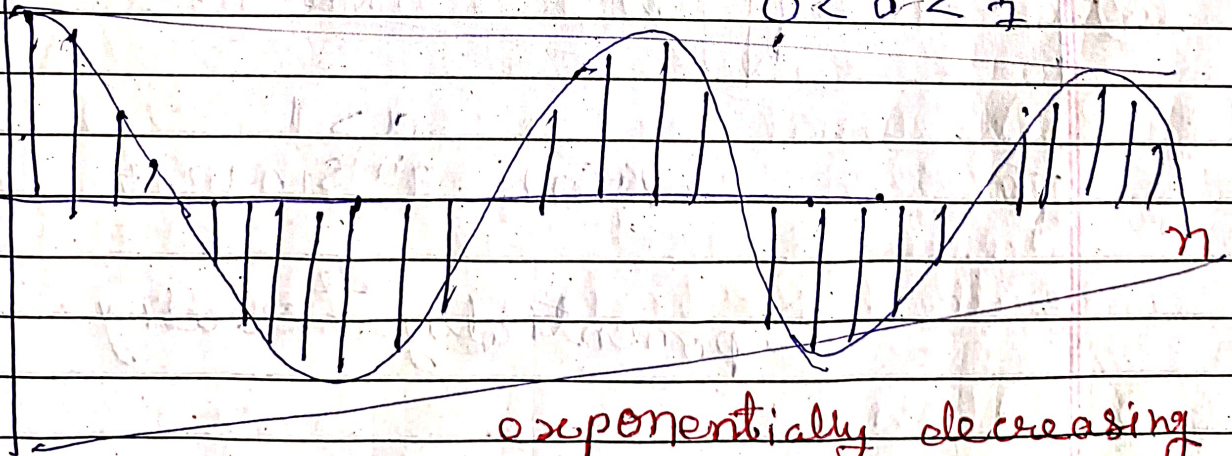 0 < a < 1
n
exponentially decreasing